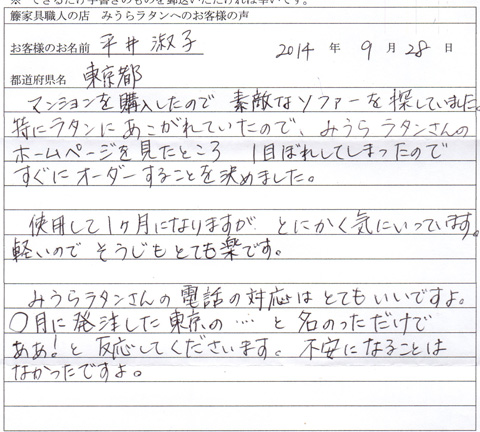 ※ できるだけ手書きのものを郵送いただければ幸いです。
籐家具職人の店 みうらラタンへのお客様の声
お客様のお名前 平井 淑子 2014 年 9 月 28 日
都道府県名 東京都
マンションを購入したので 素敵なソファーを探していました。
特にラタンにあこがれていたので、みうらラタンさんの
ホームページを見たところ 1目ぼれしてしまったので
すぐにオーダーすることを決めました。
使用して1ヶ月になりますが とにかく気にいっています。
軽いので そうじもとても楽です。
みうらラタンさんの 電話の対応は とてもいいですよ。
〇月に発注した東京の … と 名のっただけで
ああ!と 反応してくださいます。不安になることは
なかったですよ。